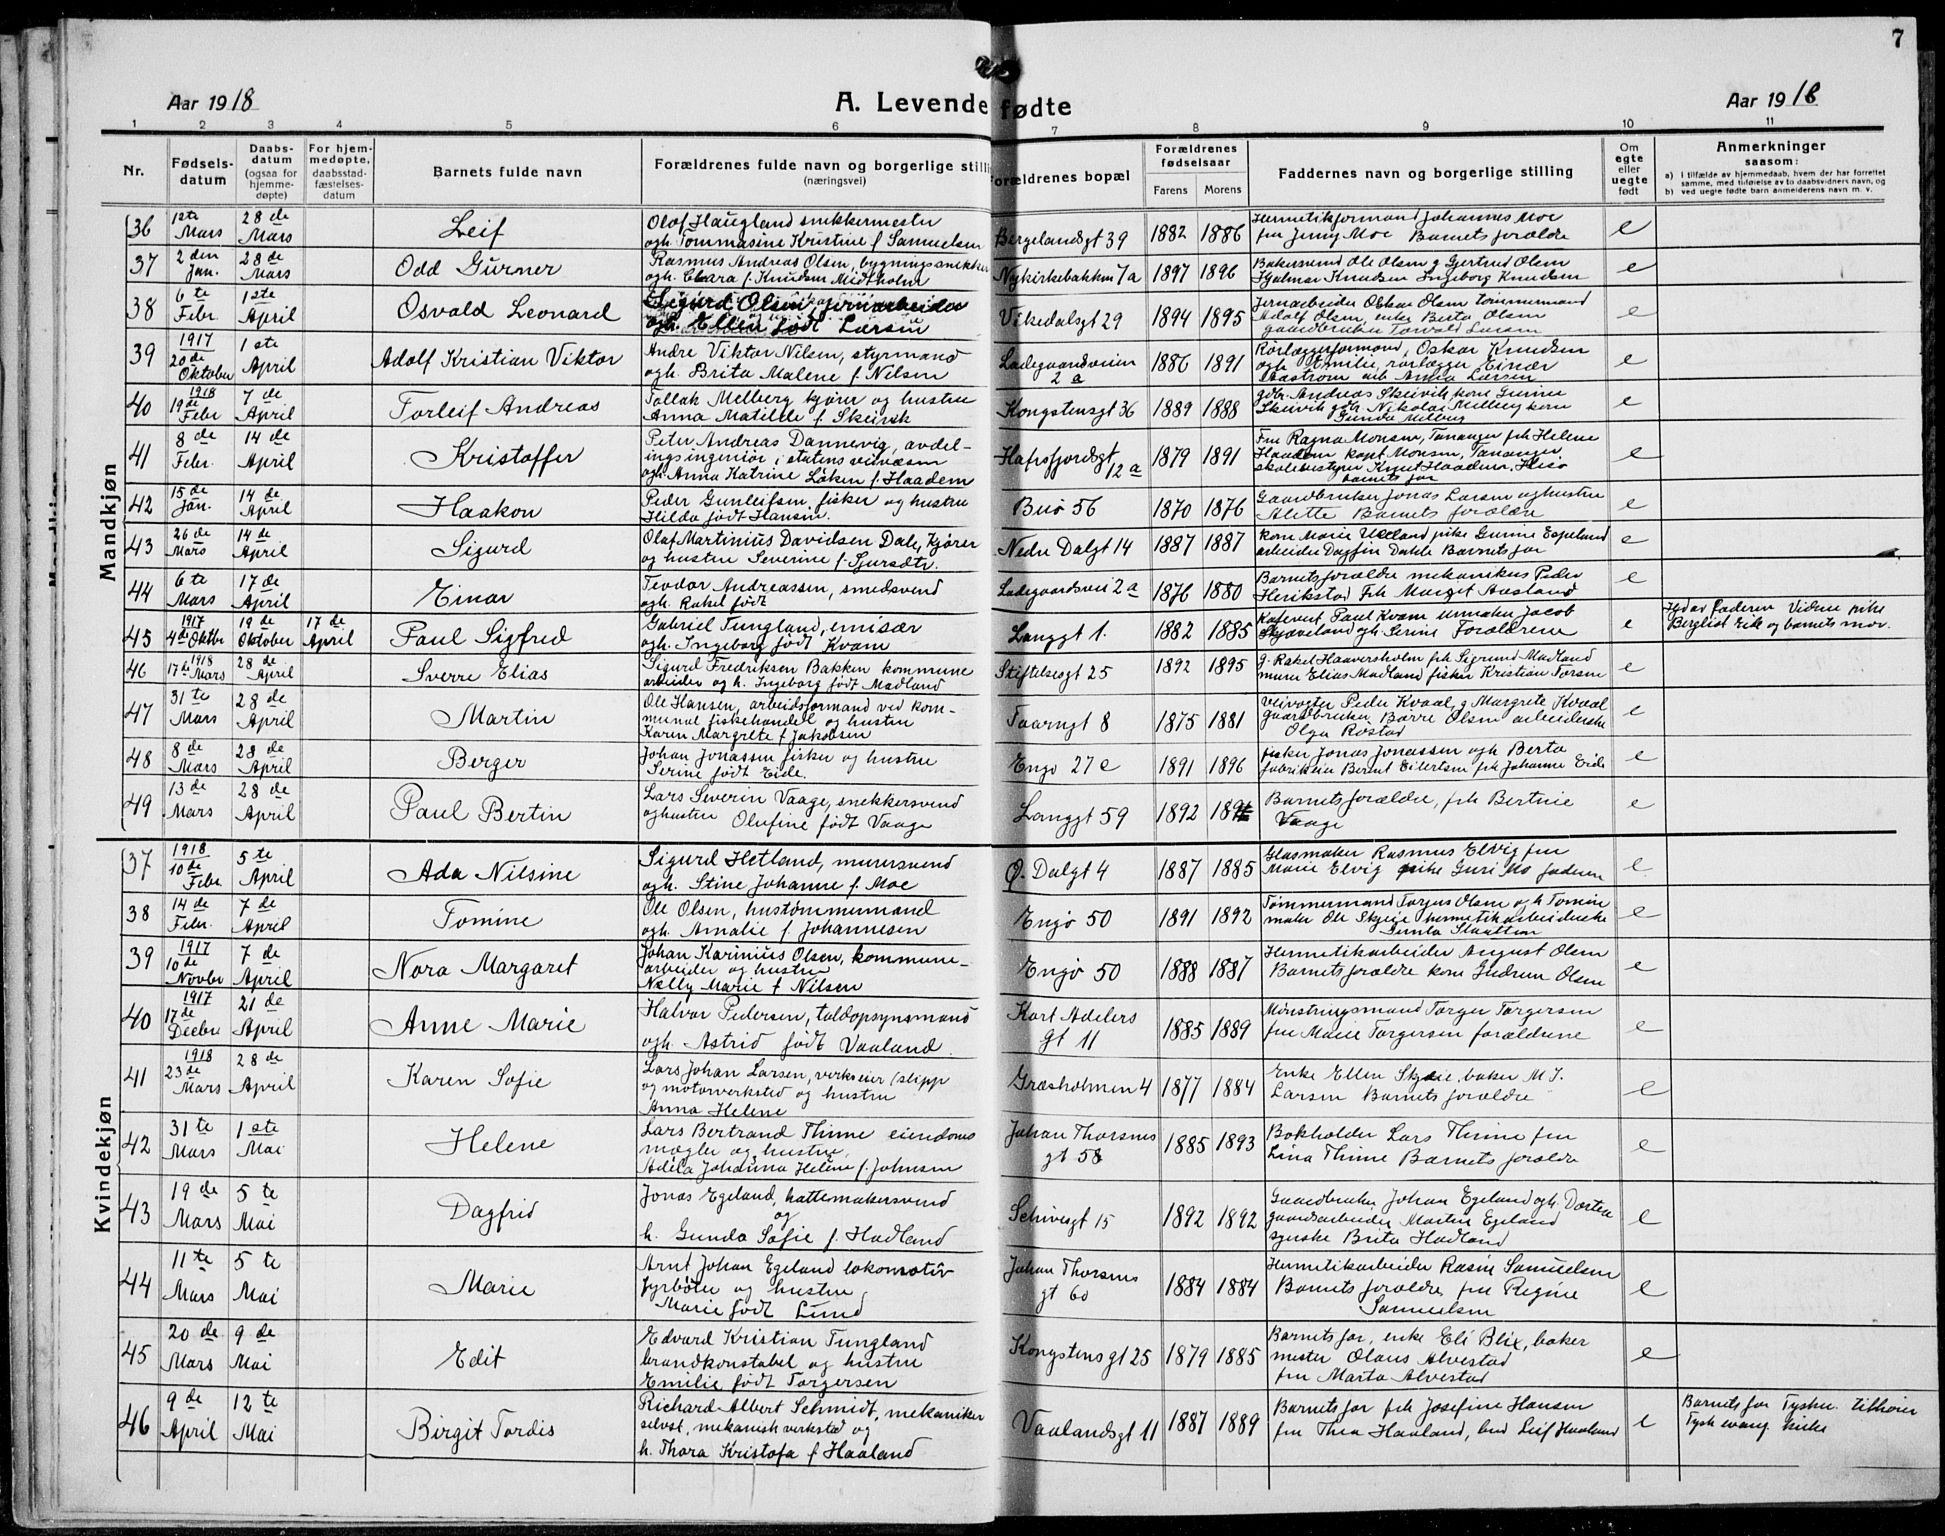 7
Aar 1918
A. Levende fødte
Aar 1918
1 2 3 4 5 6 7 8 9 10 11
Nr.
Fødsels-
datum
Daabs-
datum
(ogsaa for
hjemme-
døpte)
For hjem-
medøpte,
daabsstad-
fæstelses-
datum
Barnets fulde navn
Forældrenes fulde navn og borgerlige stilling
(næringsvei)
Forældrenes bopæl
Forældrenes
fødselsaar
Farens Morens
Faddernes navn og borgerlige stilling
Om
egte
eller
uegte
født
Anmerkninger
saasom:
a) I tilfælde av hjemmedaab, hvem der har forrettet
samme, med tilføielse av to daabsvidners navn, og
b) ved uegte fødte barn anmelderens navn m. v.
Mandkjøn
36 1ste Mars 28de Mars Leif
Olaf Haugland snekkermester
ogh. Tommasine Kristine f. Samuelsen
Bergelandsgt 39 1882 1886
Hermetikformand Johannes Moe
fru Jenny Moe Barnets forældre
e
37 2den Jan. 28de Mars Odd Gurner
Rasmus Andreas Olsen, bygningssnikker
ogh. Clara f. Knudsen Midtholm
Nykirkebakken 7a 1897 1896
Bakersvend Ole Olsen g Gjertrud Olsen
Hjalmar Knudsen Ingeborg Knudsen
e
38 6te Febr. 1ste April Osvald Leonard
Sigurd Olsen jernarbeider
ogh. Ellen født Larsen
Vikedalsgt 29 1894 1895
Jernarbeider Oskar Olsen tømmermand
Adolf Olsen, enke Berta Olsen
gaardbruker Torvald Larsen
e
39 1917 20de Oktober 1ste April Adolf Kristian Viktor
Andre Viktor Nilsen, styrmand
ogh. Brita Malene f. Nilsen
Ladegaardsveien 2a 1886 1891
Rørlæggerformand, Oskar Knudsen
ogh Emilie, rørlægger Einar
Aastrøm Anna Larsen
e
40 1918 19de Febr 7de April Torleif Andreas
Tollak Melberg kjører og hustru
Anna Matilde f. Skeirsk
Kongstensgt 36 1889 1888
gdbr. Andreas Skeivik kone Gurine
Skeivik gdbr. Nikolai Melberg kone
Gunda Melberg
e
41 8de Febr. 14de April Kristoffer
Peter Andreas Dannevig, avdel-
ingsingeniør i statens veivæsen
ogh. Anna Katrine Løken f. Haadem
Hafrsfjordsgt 12a 1879 1891
Fru Ragna Monsen, Tananger frk Helene
Haadem kapt Monsen, Tananger,
skolebestyrer Knut Haadem,
barnets far
e
42 15de Jan. 14de April Haakon
Peder Gunleifsen fisker og hustru
Hilda født Hansen.
Buø 56 1870 1876
Gaardbruker Jonas Larsen og hustru
Alette Barnets forældre
e
43 26de Mars 14de April Sigurd
Olaf Martinius Davidsen Dale, kjører
og hustru Severine f. Sjursdtr.
Nedre Dalgt 14 1887 1887
kone Marie Ueland pike Gurine Espeland
arbeider Dagfin Dahle Barnets far
e
44 6te Mars 17de April Einar
Teodor Andreassen, smedsvend
ogh. Rakel født
Ladegaardsvei 2a 1876 1880
Barnets forældre mekanikus Peder
Herikstad Frk Margit Aasland
e
45 1917 4de Oktbr 19de Oktober 17de April Paul Sigfred
Gabriel Tungland, emisær
ogh. Ingeborg født Kvam
Langgt 1. 1882 1885
Kafevert, Paul Kvam urmaker Jacob
Kjæreland ogh. Serine Forældrene
e
Hjd av faderen Vidner pike
Berglist Eik og barnets mor.
46 1918 17de Mars 28de April Sverre Elias
Sigurd Fredriksen Bakken kommune
arbeider og h. Ingeborg født Madland
Stiftelsesgt 25 1892 1895
g. Rakel Haaversholm frk Sigrund Madland
murer Elias Madland fisker Kristian Torsen
e
47 31te Mars 28de April Martin
Ole Hansen, arbeidsformand ved kom-
munal fiskehandel og hustru
Karen Margrete f Jakobsen
Taarngt 8 1875 1881
Veivogter Peder Kvaal, g Margrete Kvaal
gaardbruker Børre Olsen arbeiderske
Olga Rostad
e
48 8de Mars 28de April Berger
Johan Jonassen fisker og hustru
Serine født Eide.
Engø 27e 1891 1896
fisker Jonas Jonassen ogh Berta
fabrikeier Bernt Eilertsen frk Johanne Eide
e
49 13de Mars 28de April Paul Bertin
Lars Severin Vaage, snekkersvend
og hustru Olufine født Vaage
Langgt 59 1892
Barnets forældre, frk Bertine
Vaage
e
Kvindekjøn
37 1918 10de Febr. 5te April Ada Nilsine
Sigurd Hetland, murersvend
ogh. Stine Johanne f. Moe
Ø. Dalgt 4 1887 1885
Glasmaker Rasmus Elvig fru
Marie Elvig pike Guri Mo faderen
e
38 14de Febr. 7de April Tomine
Ole Olsen, hustømmermand
ogh. Amalie f Johannesen
Engø 50 1891 1892
Tømmermand Torjus Olsen ogh Tomine
maler Ole Skjeie hermetikarbeiderske
Gunla Skatten
e
39 1917 10de Novbr 7de April Nora Margaret
Johan Karinius Olsen, kommune-
arbeider og hustru
Nelly Marie f Nilsen
Engø 50 1888 1887
Hermetikarbeider August Olsen
Barnets forældre kone Gudrun Olsen
e
40 1917 17de Decbr 21de April Anne Marie
Halvor Pedersen, toldopsynsmand
ogh. Astrid født Vaaland.
Kort Adelers gt 11 1885 1889
Mønstringsmand Torger Torgersen
fru Marie Torgersen forældrene
e
41 1918 23de Mars 28de April Karen Sofie
Lars Johan Larsen, verkseier (slipp
og motorverksted og hustru
Anna Helene
Græsholmen 4 1877 1884
Enke Ellen Skjæie, baker M J.
Larsen Barnets forældre
e
42 31te Mars 1ste Mai Helene
Lars Bertrand Thime eiendoms
mægler og hustru
Adela Johanna Helene f. Johnsen
Johan Thorsens gt 58 1885 1893
Bokholder Lars Thime fru
Lina Thime Barnets forældre
e
43 19de Mars 5te Mai Dagfrid
Jonas Egeland, hattemakersvend
og
h. Gunda Sofie f. Hadland
Schivesgt 15 1892 1892
Gaardbruker Johan Egeland ogh. Dortea
gaardsarbeider Martin Egeland
syerske Brita Hadland
e
44 11te Mars 5te Mai Marie
Arnt Johan Egeland lokomotiv
fyrbøter og hustru
Marie født Lund
Johan Thorsens gt 60 1884 1884
Hermetikarbeider Rasm Samuelsen
Barnets forældre fru Regine
Samuelsen
e
45 20de Mars 9de Mai Edit
Edvard Kristian Tungland
brandkonstabel og hustru
Emilie født Torgersen
Kongstensgt 25 1879 1885
Barnets far, enke Eli Blix, baker
mester Olaus Alvestad
fru Marta Alvestad
e
46 9de April 12te Mai Birgit Tordis
Richard Albert Schmidt, mekaniker
selvst. mekanisk verksted og
h. Thora Kristofa f Haaland
Vaalandsgt 11 1887 1889
Barnets far frk Josefine Hansen
fru Thea Haaland, Leif Haaland
e
Barnets far Tysker. tilhører
Tysk evang. kirke